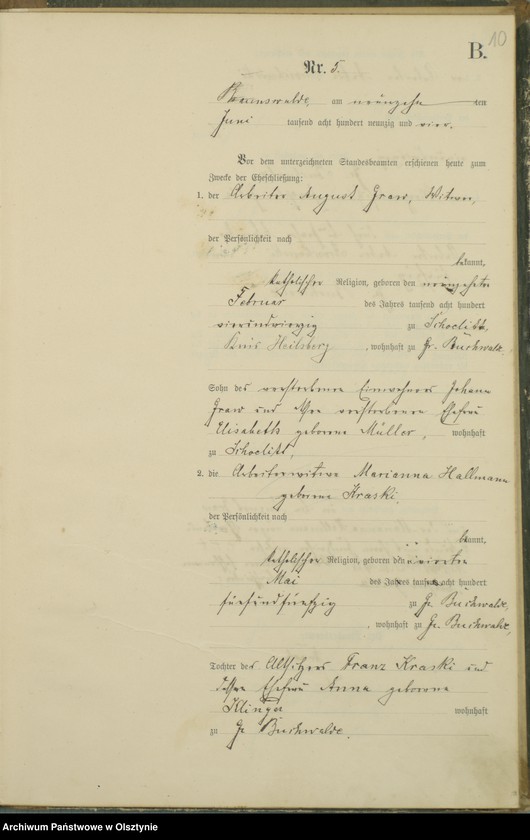 10
B.
Nr. 5.
Braunswalde, am neunzehn ten
Juni tausend acht hundert neunzig und vier.
Vor dem unterzeichneten Standesbeamten erschienen heute zum
Zwecke der Eheschließung:
1. der Arbeiter August Graw, Witwer,
der Persönlichkeit nach
bekannt,
katholischer Religion, geboren den neunzehnten
Februar des Jahres tausend acht hundert
vierundvierzig zu Schoclitt,
Kreis Heilsberg, wohnhaft zu Gr. Buchwalde
Sohn des verstorbenen Einwohners Johann
Graw und verstorbenen Ehefrau
Elisabeth geborene Müller, wohnhaft
zu Schoclitt,
2. die Arbeiterwitwe Marianna Hallmann
geborene Kraski
der Persönlichkeit nach
bekannt,
katholischer Religion, geboren den vierten
Mai des Jahres tausend acht hundert
fünfundfünfzig zu Gr. Buchwalde,
, wohnhaft zu Gr. Buchwalde,
Tochter des Altsitzers Franz Kraski und
dessen Ehefrau Anna geborene
Klinger wohnhaft
zu Gr Buchwalde.
Archiwum Państwowe w Olsztynie